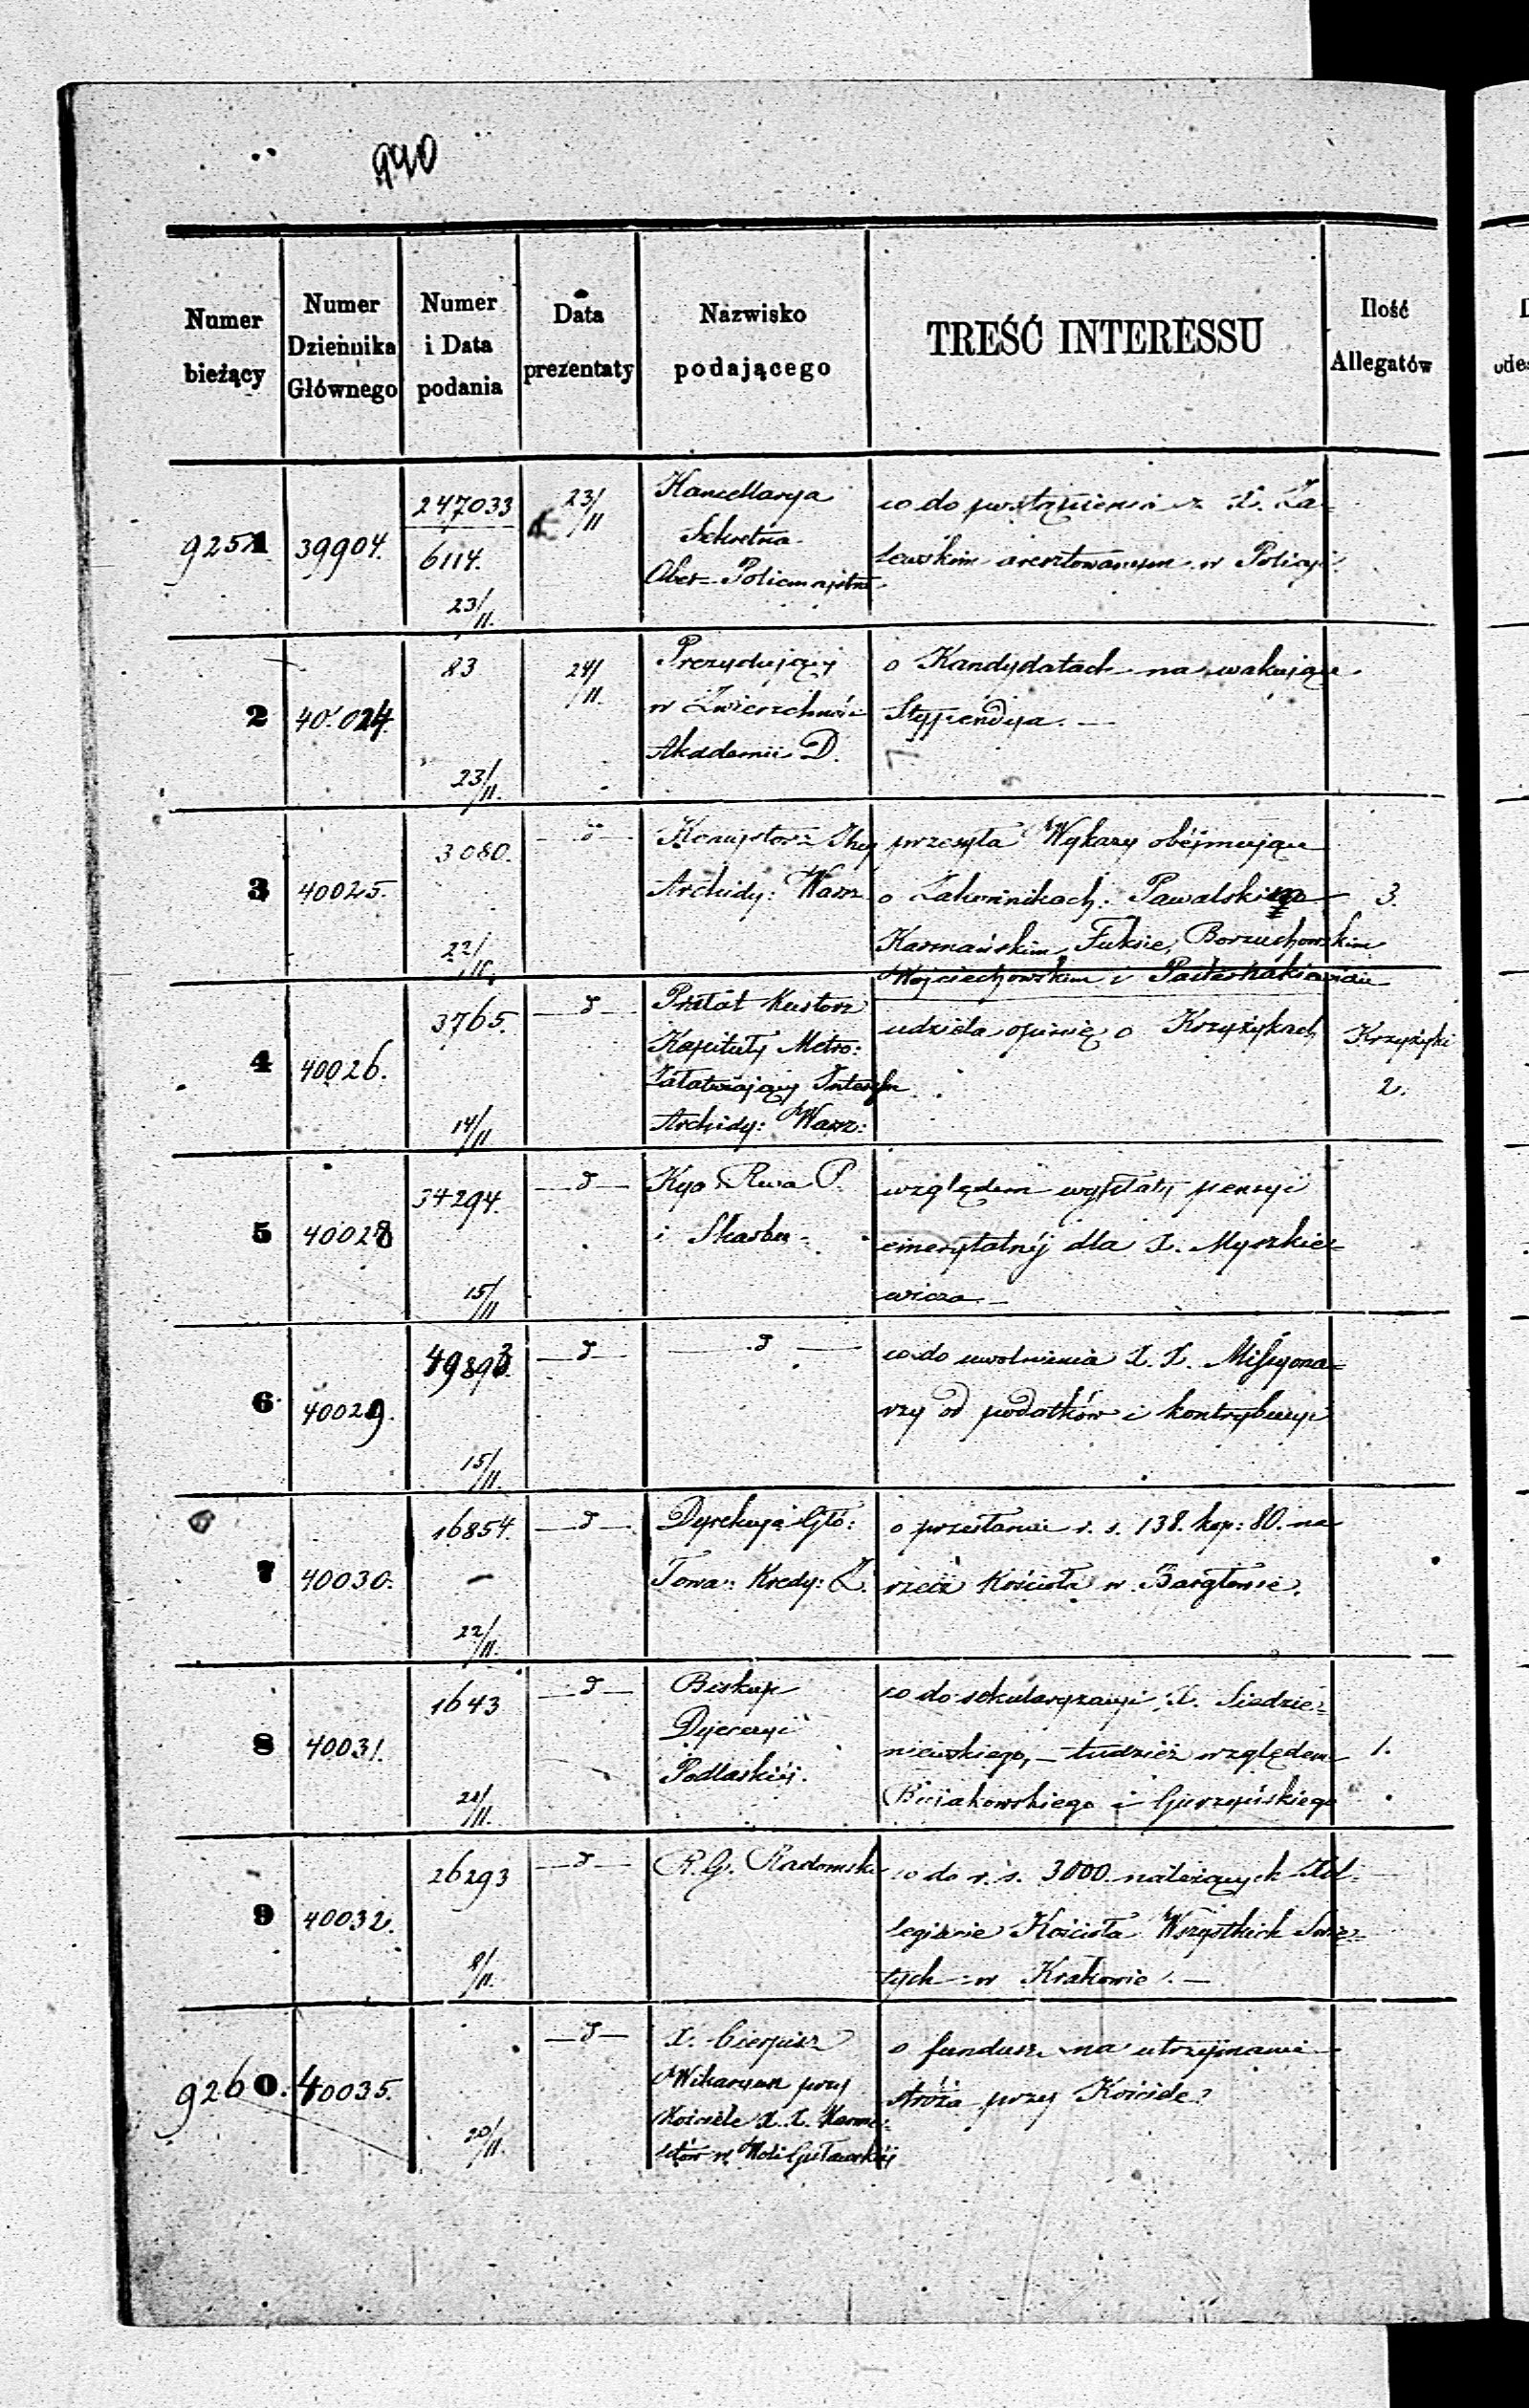 940
Numer bieżący
Numer Dziennika Głównego
Numer i Data podania
Data prezentaty
Nazwisko podającego
TREŚĆ INTERESSU
Ilość Allegatów
9251
39904.
247033
6114.
23/11.
23/11
Kancellarya
Sekretna
Ober=Policmajstra
co do postąpienia z X. Za-
lewskim aresztowanym w Policyi.
2
40.024.
83
23/11.
24/11.
Prezydujący
w Zwierzchność
Akademii D.
o Kandydatach na wakujące
Stypendya. —
3
40025.
3080.
22/11.
Konsystorz Jlny
Archidy: Warsz
przesyła Wykazy obéjmujące
o Zakonnikach: Pawalskim
Karmańskim, Fuksie, Borzuchowskim
Wojciechowskim i
3.
4
40026.
3765.
14/11
— d —
Prałat Kustosz
Kapituły Metro:
Załatwiający Interesa
Archidy: Warsz:
udziela opinię o Krzyżykach
Krzyżyki
2.
5
40028
34294.
15/11
— d —
Kya Rwa P.
i Skarbu-
względem wypłaty pensyi
emerytalnéj dla X. Myszkie=
wicza. —
6
40029.
49893.
15/11.
— d —
— d —
co do uwolnienia X. X. Missyona=
rzy od podatków i kontrybucyi
7
40030.
16854.
22/11.
— d —
Dyrekcya Głó:
Towa: Kredy: Z.
o przesłanie r. s. 138. kop: 80. na
rzecz Kościoła w Bargłowie.
8
40031.
1643
21/11.
— d —
Biskup
Dyecezyi
Podlaskiéj.
co do sekularyzacyi X. Siedzie=
niewskiego, — tudzież względem
i Gurzyńskiego
1.
9
40032.
26293
8/11.
— d —
R. G. Radomski
co do r. s. 3000. należących Kol-
legiacie Kościoła Wszystkich Świę-
tych w Krakowie. —
9260.
40035.
20/11.
— d —
X. Cierpisz
Wikaryusz przy
Kościele X. X. Karme-
litów w Woli Gułowskiéj
o fundusz na utrzymanie
stróża przy Kościele?